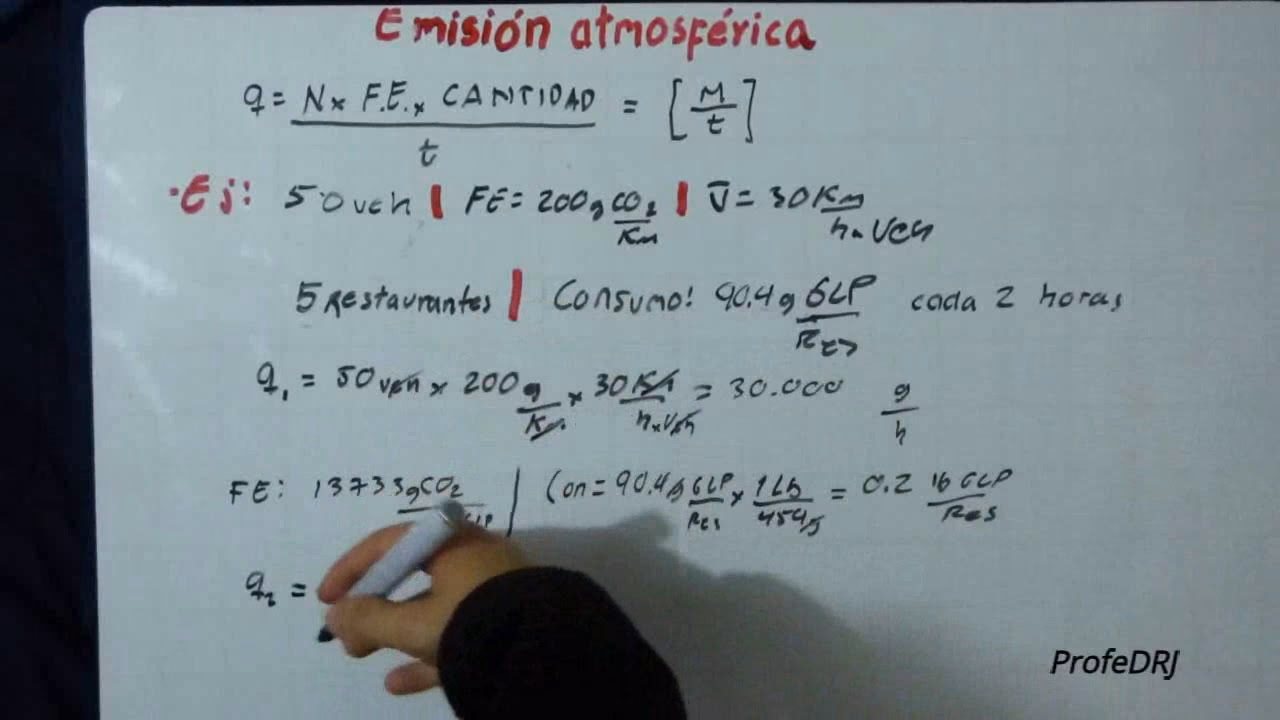 Emisión atmosférica
q = N x F.E. x CANTIDAD / t = [M/t]
·Ej: 50 veh | FE = 200g CO2/Km | V̅ = 30 Km/h.veh
5 Restaurantes | Consumo: 90.4g GLP/Res cada 2 horas
q1 = 50 veh x 200 g/Km x 30 Km/h x veh = 30.000 g/h
FE: 13733 gCO2/ | Con = 90.4g GLP/Res x 1Lb/454g = 0.2 lb GLP/Res
q2 =
ProfeDRJ